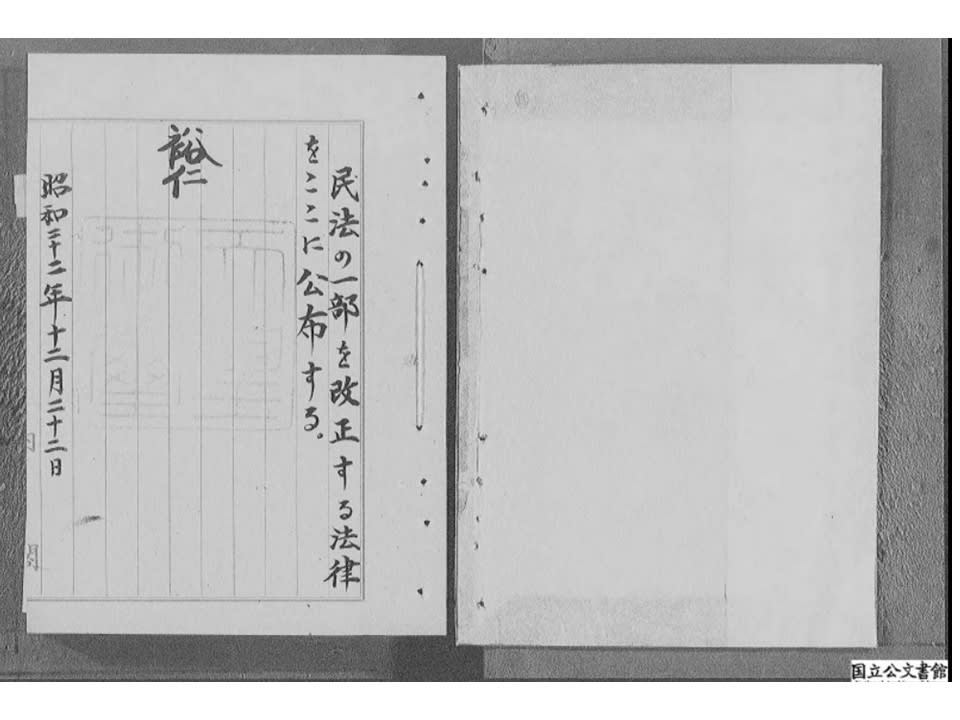 民法の一部を改正する法律
をここに公布する。
裕仁
昭和二十二年十二月二十二日
内閣
国立公文書館